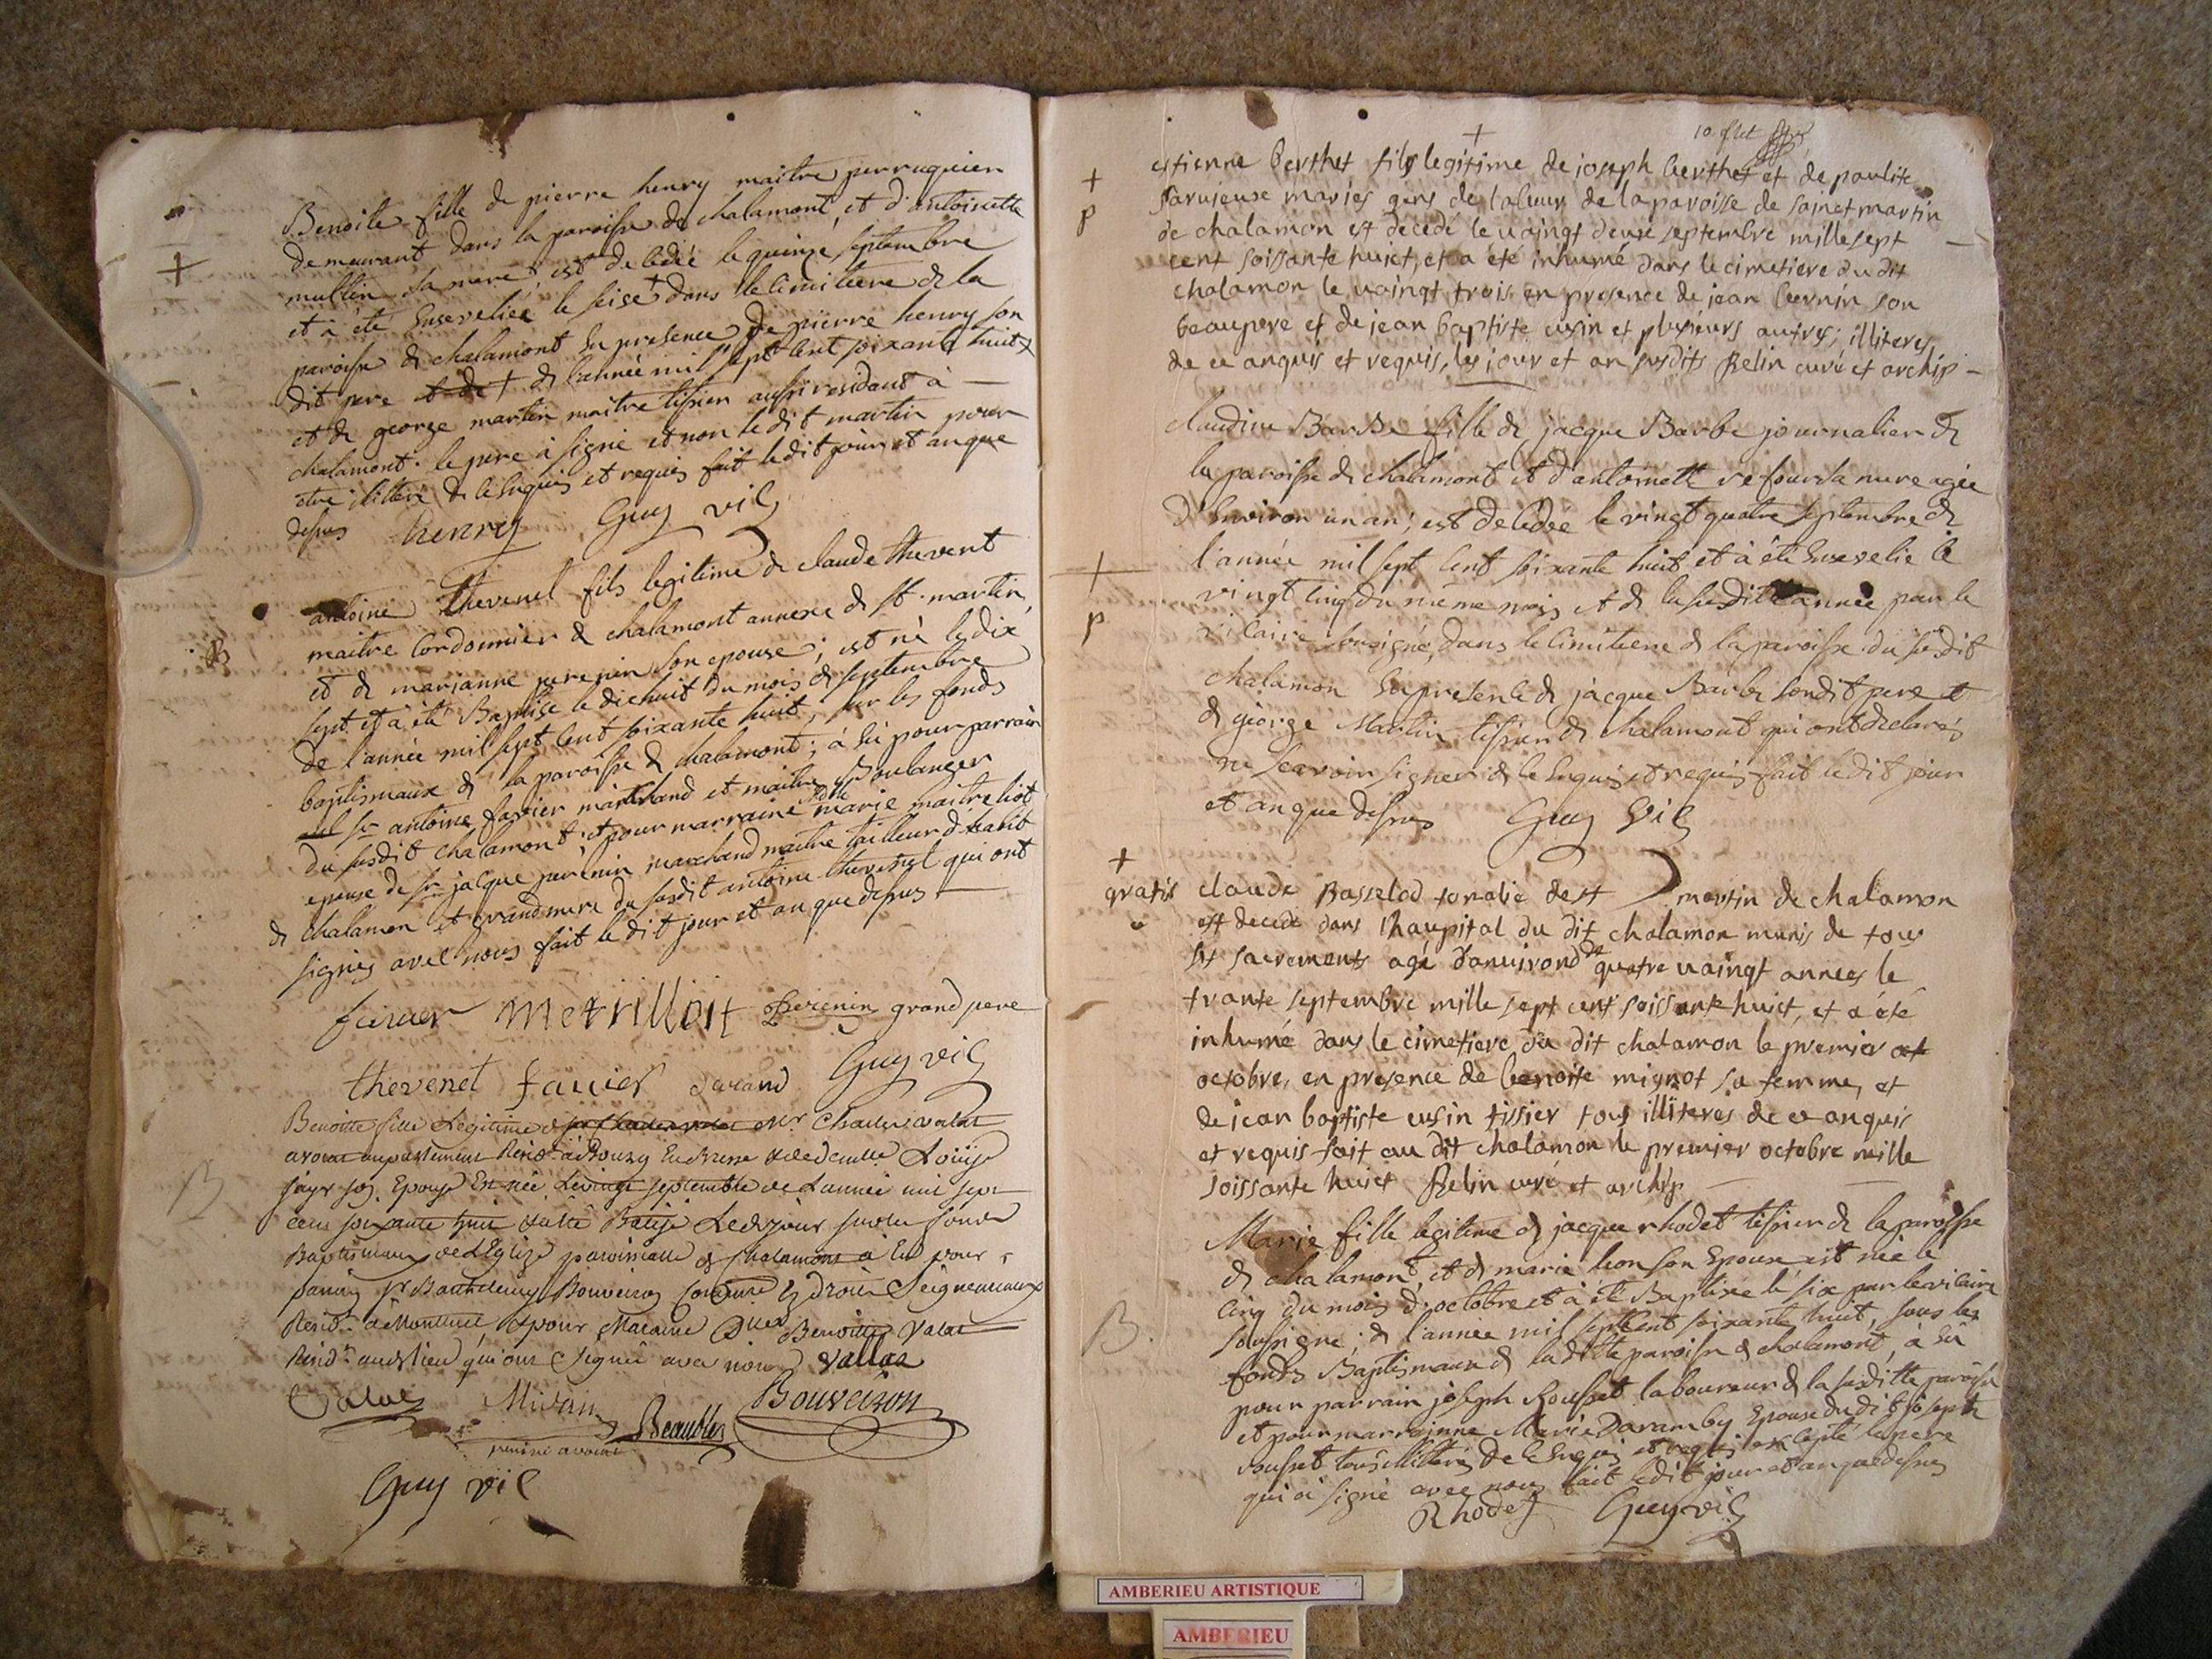 Benoite fille de pierre henry maitre perruquier
demeurant dans la paroisse de chalamont, et d'antoinette
sa mere; est decedée le quinze septembre
et à été Ensevelie le seise + dans le Cimitiere de la
paroisse de chalamont En presence de pierre henry son
dit pere + de l'année mil sept cent soixante huit +
et de george martin maitre tissier aussi residant à
chalamont. le pere à signé et non le dit martin pour
etre illitéré de ce Enquis et requis fait le dit jour et an que
dessus henry Guy vic
+
antoine thevenet fils legitime de claude thevent
maitre Cordonnier de chalamont annexe de st. martin,
et de marianne perenin son epouse; est né le dix
sept et à été Baptisé le dix huit du mois de septembre
de l'année mil sept cent soixante huit, sur les fonds
baptismaux de la paroisse de chalamont; à Eu pour parrain
sr antoine favier marchand et maitre Boulanger
du susdit chalamont; et pour marraine marie
epouse de sr jacque perenin marchand maitre tailleur d'habit
de chalamon et grand mere du susdit antoine thevenet qui ont
signés avec nous fait le dit jour et an que dessus
B
favier Perenin grand pere
thevenet favier durand Guy vic
Benoitte fille Legitime de Mr Charles valat
avocat au parlement Resid.t à Bourg En Bresse et de demlle Loüise
son Epouse Est née Le vingt septembre de L'année mil sept
cens soixante huit et a été Batisé Le d. jour sur les fonds
Baptismaux de L'Eglize paroissialle de Chalamont a Eu pour
parrin sr Barthelemy Bouveiron Comissre Es droits Seigneuriaux
Resid.t à Montluel et pour Maraine Dlle Benoitte Valat
Resid.te aud. lieu qui ont signé avec nous vallat
B
Valat Bouveiron
Guy vic
10
+
estienne berthet fils legitime de joseph berthet et de paulite
mariés gens de labeur de la paroisse de sainct martin
de chalamon est decedé le vaingt deux septembre mille sept
cent soissante huict, et a été inhumé dans le cimetiere du dit
chalamon le vaingt trois en presence de jean bernin son
beaupere et de jean baptiste cusin et plusieurs autres; illiteres
de ce anquis et requis, les jour et an susdits Relin curé et archip
+
p
claudine Barbe fille de jacque Barbe journalier de
la paroisse de chalamont et d'antoinette sa mere agée
d'Environ un an; est decedée le vinct quatre septembre de
l'année mil sept cent soixante huit et à été Ensevelie le
vingt cinq du même mois et de la susdite année par le
vicaire sousigné, dans le Cimitiere de la paroisse du susdit
chalamon En presence de jacque Barbe son dit pere et
de george Martin tissier de chalamont qui ont declarés
ne scavoir signer de ce Enquis et requis fait le dit jour
et an que dessus Guy Vic
+
p
+
gratis
claude Basselod de st martin de chalamon
est decedé dans l'haupital du dit chalamon munis de tous
ses sacrements agé d'anvirond quatre vaingt années le
trante septembre mille sept cent soissante huict, et a été
inhumé dans le cimetiere du dit chalamon le premier
octobre, en presence de benoite mignot sa femme, et
de jean baptiste cusin tissier tous illiteres de ce anquis
et requis fait au dit chalamon le premier octobre mille
soissante huict Relin curé et archip
Marie fille legitime de jacque rhodet tissier de la paroisse
de chalamont, et de marie son Epouse est née le
cinq du mois d'octobre et à été Baptisée le six par le vicaire
soussigné de l'année mil sept cent soixante huit, sous les
fonds Baptismaux de la ditte paroisse de chalamont, à Eu
pour parrain joseph Rousset laboureur de la susditte paroisse
et pour marrainne Marie Daramby Epouse du dit joseph
rousset tous illiterés de ce Enquis et requis excepté le pere
qui à signé avec nous fait le dit jour et an que dessus
B.
Rhodet Guy vic
AMBERIEU ARTISTIQUE
AMBERIEU